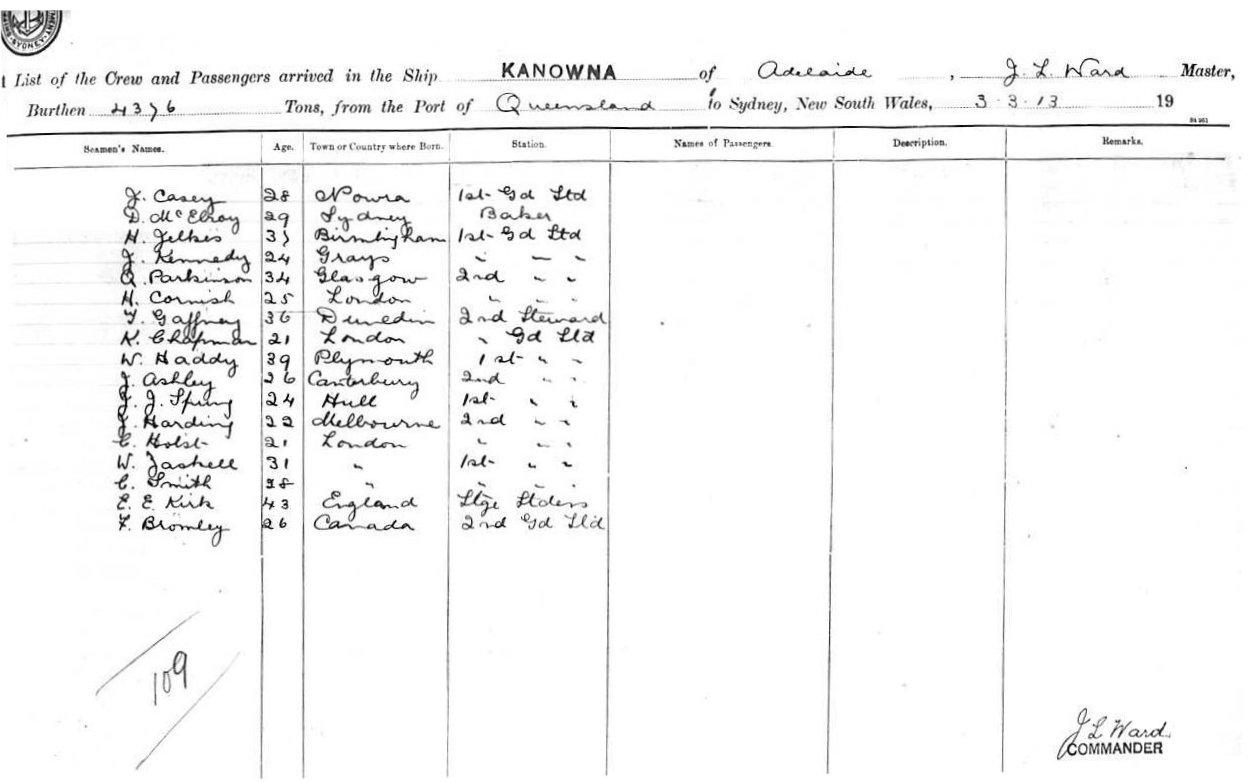 SYDNEY
List of the Crew and Passengers arrived in the Ship KANOWNA of Adelaide, J. L. Ward Master,
Burthen 4376 Tons, from the Port of Queensland to Sydney, New South Wales, 3-3-13 19
Seamen's Names. Age. Town or Country where Born. Station. Names of Passengers. Description. Remarks.
J. Casey 28 Nowra 1st Gd Std
D. McElroy 29 Sydney Baker
H. 37 Birmingham 1st Gd Std
J. Kennedy 24 Grays " " "
Q. Parkinson 34 Glasgow 2nd " "
H. Cornish 25 London " " "
T. Gaffney 36 Dunedin 2nd Steward
K. Chapman 21 London " Gd Std
W. Haddy 39 Plymouth 1st " "
J. Ashley 26 Canterbury 2nd " "
J. J. Spring 24 Hull 1st " "
J. Harding 22 Melbourne 2nd " "
C. Holst 21 London " " "
W. 31 " 1st " "
C. Smith 28 " " " "
E. E. Kirk 43 England Stge Stdess
F. Bromley 26 Canada 2nd Gd Std
109
J L Ward
COMMANDER